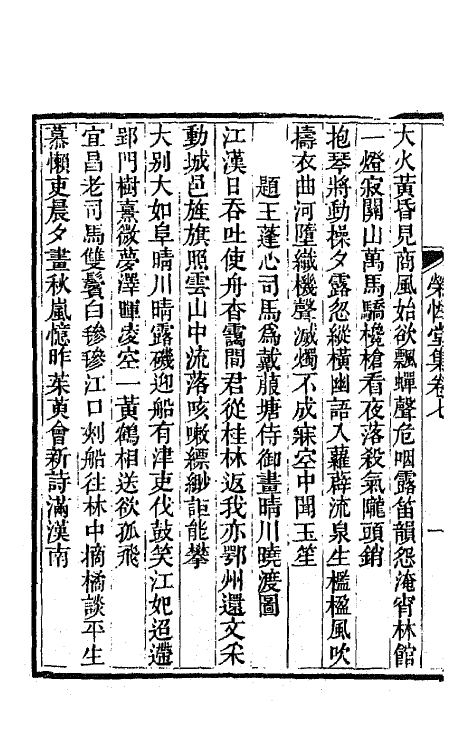 榮性堂集卷七
一
大火黃昏見商風始欲飄蟬聲危咽露笛韻怨淹宵林館
一燈寂關山萬馬驕欃槍看夜落殺氣隴頭銷
抱琴將動操夕露怨縱橫幽語入蘿薜流泉生檻楹風吹
擣衣曲河墮織機聲滅燭不成寐空中聞玉笙
題王蓬心司馬為戴菔塘侍御畫晴川曉渡圖
江漢日吞吐使舟杳靄間君從桂林返我亦鄂州還文采
動城邑旌旗照雲山中流落咳嗽縹緲詎能攀
大别大如阜晴川晴露磯迎船有津吏伐鼓笑江妃迢遰
郢門樹熹微夢澤暉凌空一黃鶴相送欲孤飛
宜昌老司馬雙鬢白毿毿江口刾船往林中摘橘談平生
慕懶吏晨夕畫秋嵐憶昨茱萸會新詩滿漢南